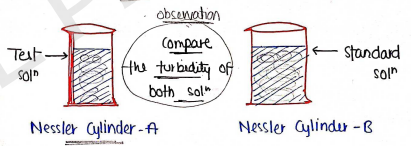 observation
Test
solⁿ
compare
the turbidity of
both solⁿ
standard
solⁿ
Nessler Cylinder-A
Nessler Cylinder-B